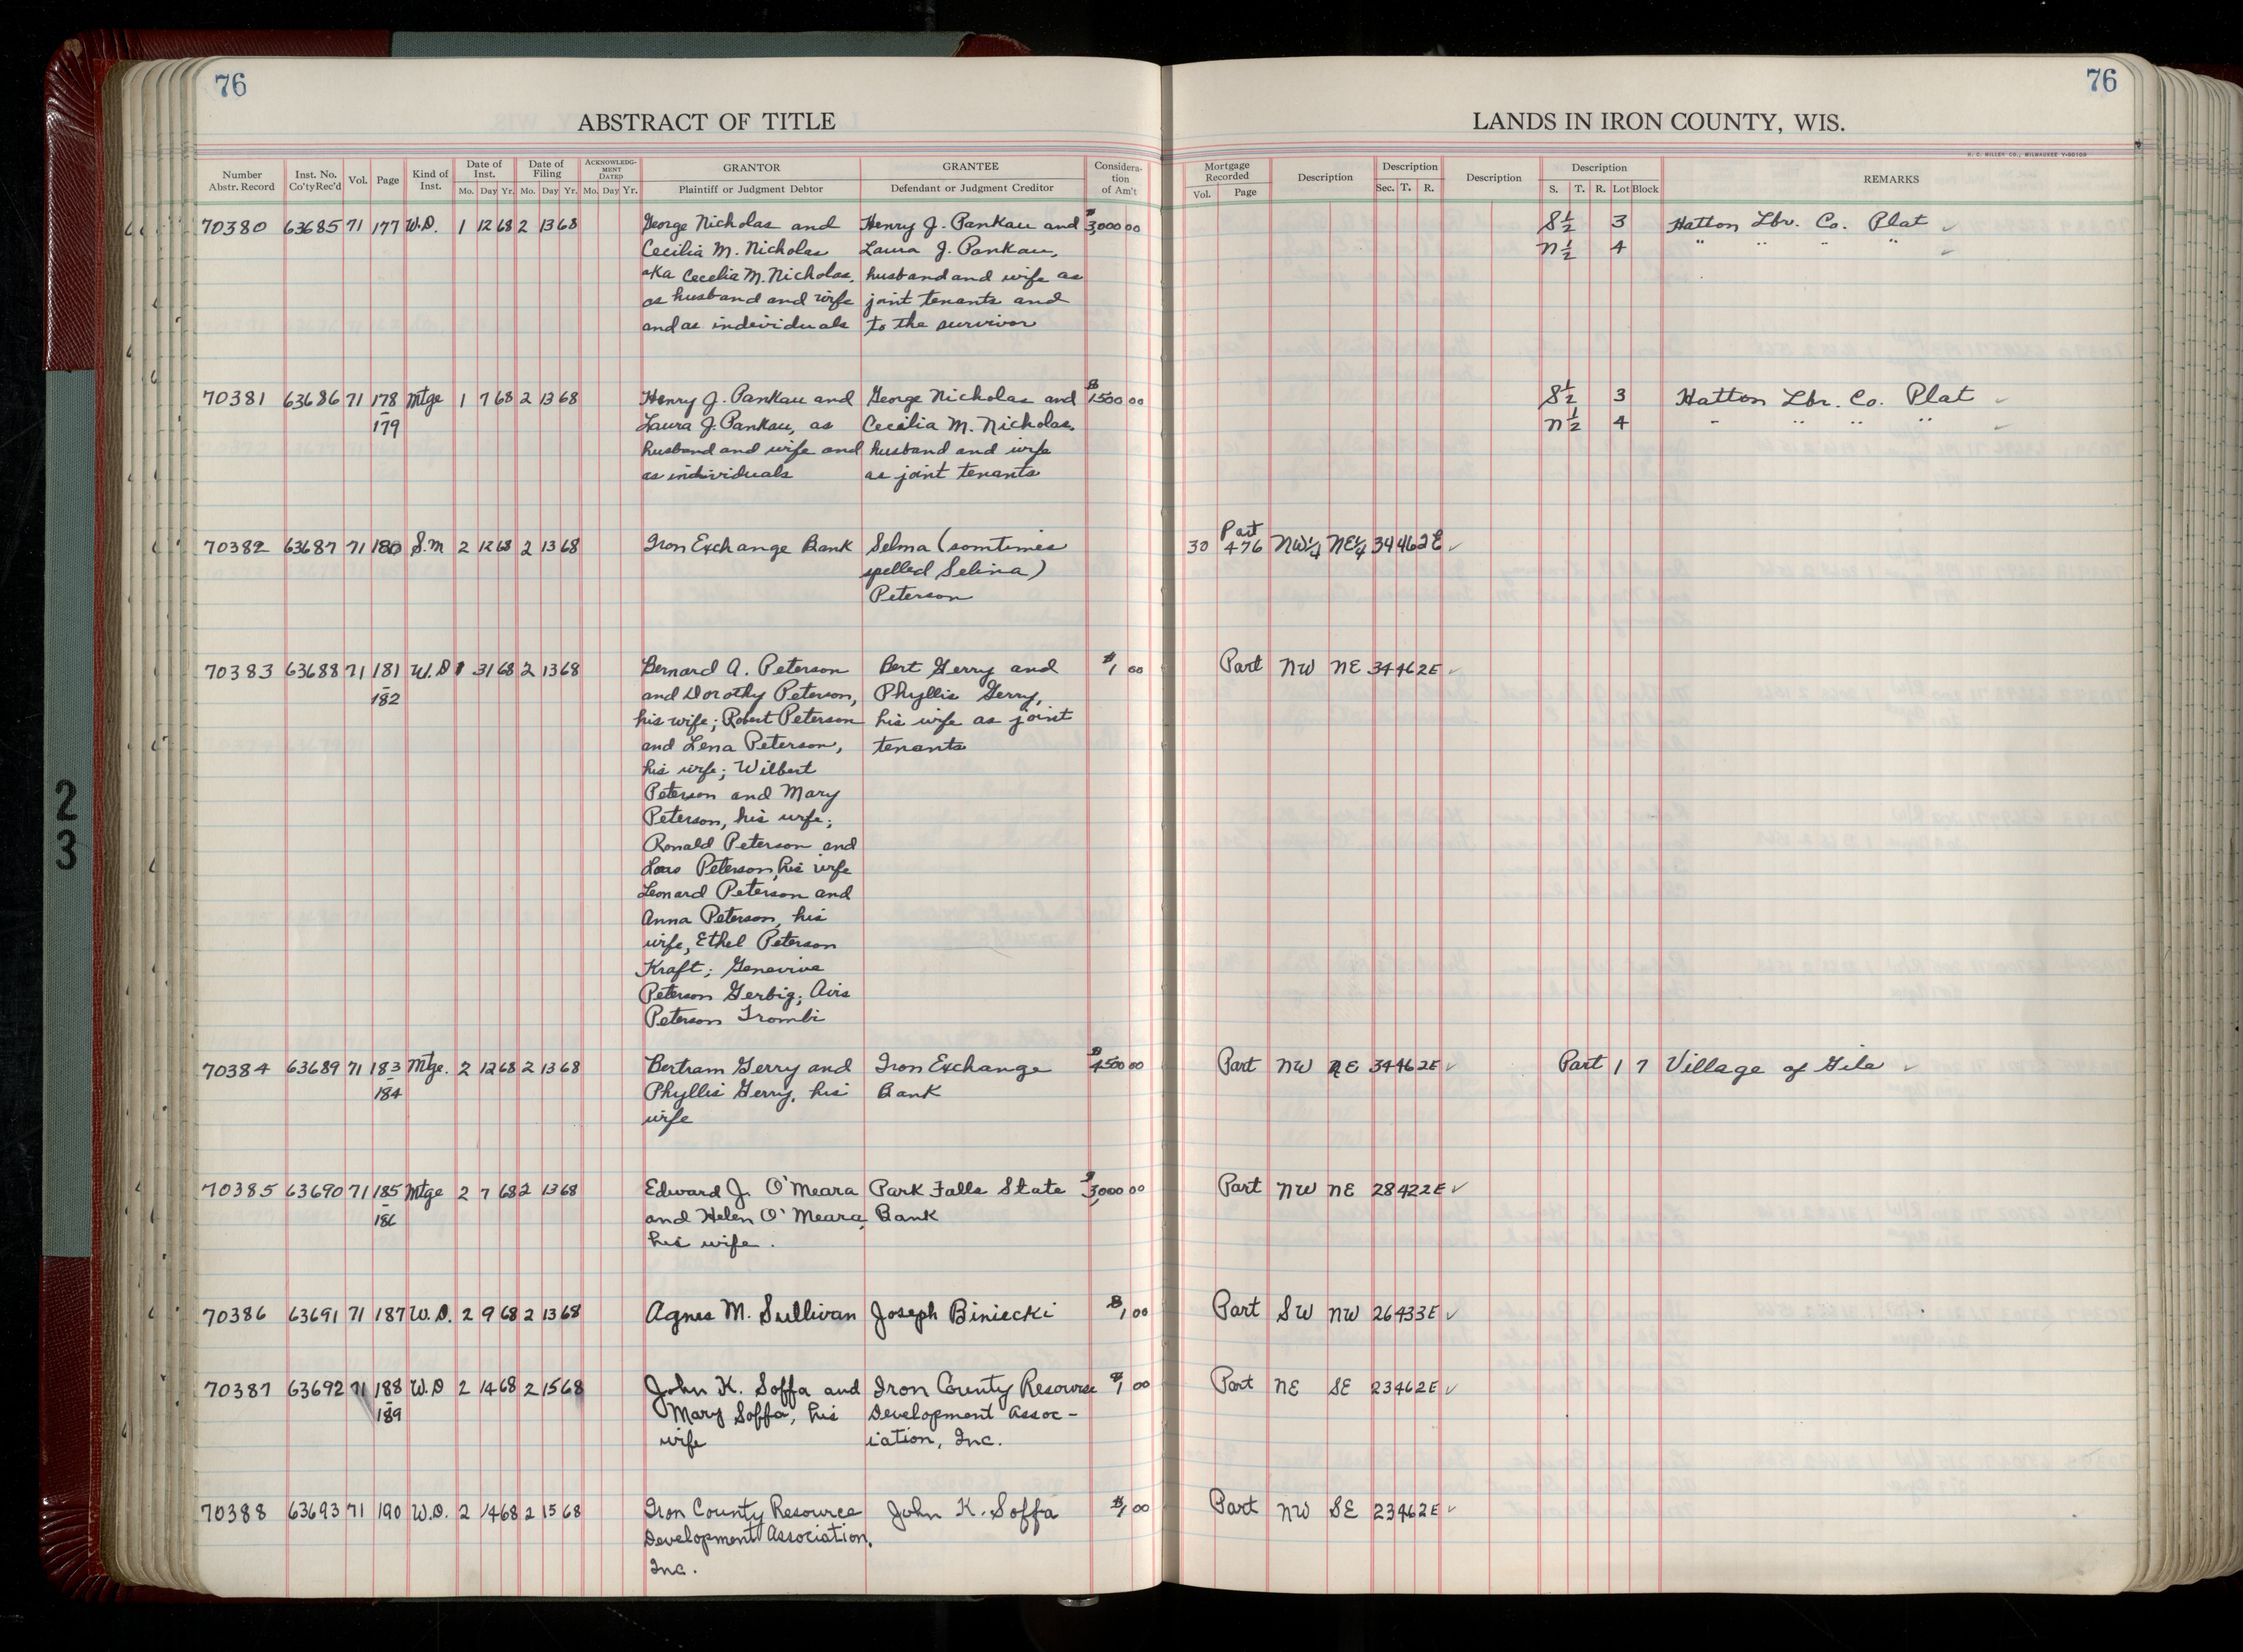 76
76
ABSTRACT OF TITLE
LANDS IN IRON COUNTY, WIS.
H. C. MILLER CO., MILWAUKEE
Number Abstr. Record | Inst. No. Co'ty Rec'd | Vol. | Page | Kind of Inst. | Date of Inst. Mo. Day Yr. | Date of Filing Mo. Day Yr. | ACKNOWLEDGMENT DATED Mo. Day Yr. | GRANTOR Plaintiff or Judgment Debtor | GRANTEE Defendant or Judgment Creditor | Consideration of Am't | Mortgage Recorded Vol. Page | Description | Description Sec. T. R. | Description | Description S. T. R. Lot Block | REMARKS
70380 63685 71 177 W.D. 1 12 68 2 13 68 George Nicholas and Henry J. Pankau and $3,000 00 S½ 3 Hatton Lbr. Co. Plat ✓
Cecilia M. Nicholas Laura J. Pankau, N½ 4 " " " " ✓
aka Cecelia M. Nicholas, husband and wife as
as husband and wife joint tenants and
and as individuals to the survivor
70381 63686 71 178 Mtge 1 7 68 2 13 68 Henry J. Pankau and George Nicholas and $1500 00 S½ 3 Hatton Lbr. Co. Plat ✓
- 179 Laura J. Pankau, as Cecilia M. Nicholas, N½ 4 " " " " ✓
husband and wife and husband and wife
as individuals as joint tenants
70382 63687 71 180 S.M 2 12 68 2 13 68 Iron Exchange Bank Selma (somtimes 30 476 Part NW¼ NE¼ 34 46 2E ✓
spelled Selina)
Peterson
70383 63688 71 181 W.D 1 31 68 2 13 68 Bernard A. Peterson Bert Gerry and $1 00 Part NW NE 34 46 2E ✓
- 182 and Dorothy Peterson, Phyllis Gerry,
his wife; Robert Peterson his wife as joint
and Lena Peterson, tenants
his wife; Wilbert
Peterson and Mary
Peterson, his wife;
Ronald Peterson and
Peterson, his wife
Leonard Peterson and
Anna Peterson, his
wife, Ethel Peterson
Kraft; Genevive
Peterson Gerbig; Avis
Peterson Trombi
70384 63689 71 183 Mtge. 2 12 68 2 13 68 Bertram Gerry and Iron Exchange $4500 00 Part NW NE 34 46 2E ✓ Part 1 7 Village of Gile ✓
- 184 Phyllis Gerry, his Bank
wife
70385 63690 71 185 Mtge 2 7 68 2 13 68 Edward J. O'Meara Park Falls State $3,000 00 Part NW NE 28 42 2E ✓
- 186 and Helen O'Meara, Bank
his wife.
70386 63691 71 187 W.D. 2 9 68 2 13 68 Agnes M. Sullivan Joseph Biniecki $1 00 Part SW NW 26 43 3E ✓
70387 63692 71 188 W.D 2 14 68 2 15 68 John K. Soffa and Iron County Resource $1 00 Part NE SE 23 46 2E ✓
- 189 Mary Soffa, his Development Assoc-
wife iation, Inc.
70388 63693 71 190 W.D. 2 14 68 2 15 68 Iron County Resource John K. Soffa $1 00 Part NW SE 23 46 2E ✓
Development Association,
Inc.
2
3